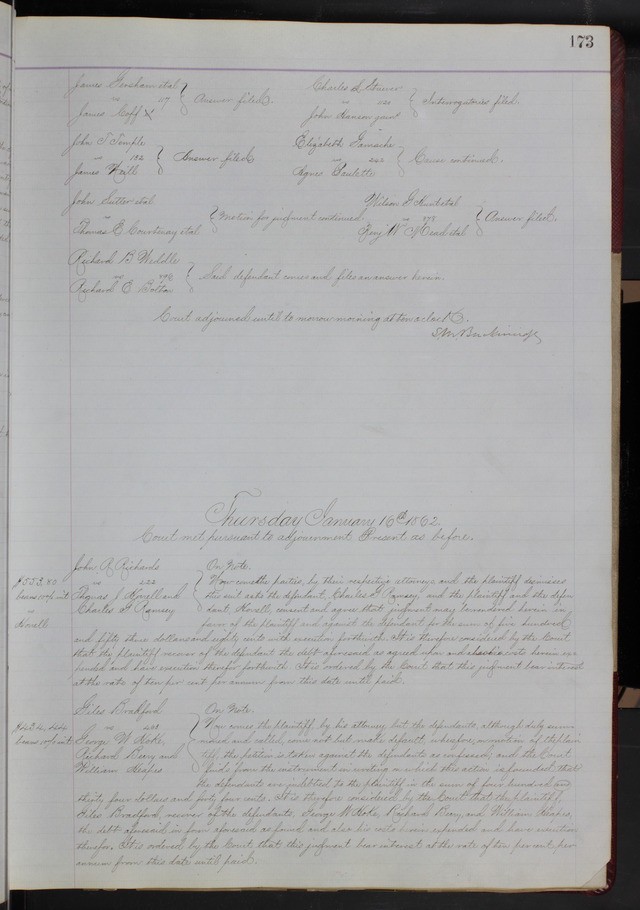 173
James Gresham et al
vs 117 } Answer filed.
James Goff X
Charles S.
vs } Interrogatories filed.
John Hanson
John T Temple
vs 192 } Answer filed
James Neill
Elizabeth Gamache
vs 242 } Cause continued.
Agnes Paulette
John Sutter et al
vs } Motion for judgment continued.
Thomas E Courtenay et al
et al
vs 278 } Answer filed.
Benj W Mead et al
Richard B Weddle
vs } Said defendant comes and files an answer herein.
Richard E Bolton
Court adjourned until to morrow morning at ten o clock
Thursday January 16th 1862.
Court met pursuant to adjournment Present as before.
John R Richards On Note.
$553.80 vs 222 Now come the parties, by their respective attorneys and the plaintiff dismisses
bears 10% int Thomas J Novell and the suit as to the defendant, Charles T Ramsey, and the plaintiff and the defen
vs Charles T Ramsey dant, Novell, consent and agree that judgment may be rendered herein in
Novell favor of the plaintiff and against the defendant for the sum of five hundred
and fifty three dollars and eighty cents with execution forthwith. It is therefore considered by the Court
that the plaintiff recover of the defendant the debt aforesaid as agreed upon and also his costs herein ex
pended and have execution therefor forthwith. It is ordered by the Court that this judgment bear interest
at the rate of ten per cent per annum from this date until paid.
Giles Bradford On Note.
$434.44 vs Now comes the plaintiff by his attorney but the defendants, although duly sum
bears 10% int George W Hoke, moned and called, come not but make default, wherefore, on motion of the plain
Richard Berry and tiff, the petition is taken against the defendants as confessed, and the Court
William Heapes finds from the instrument in writing on which this action is founded that
the defendants are indebted to the plaintiff in the sum of four hundred and
thirty four dollars and forty four cents. It is therefore considered by the Court that the plaintiff,
Giles Bradford, recover of the defendants, George W Hoke, Richard Berry, and William Heapes,
the debt aforesaid in form aforesaid as found and also his costs herein expended and have execution
therefor. It is ordered by the Court that this judgment bear interest at the rate of ten per cent per
annum from this date until paid.